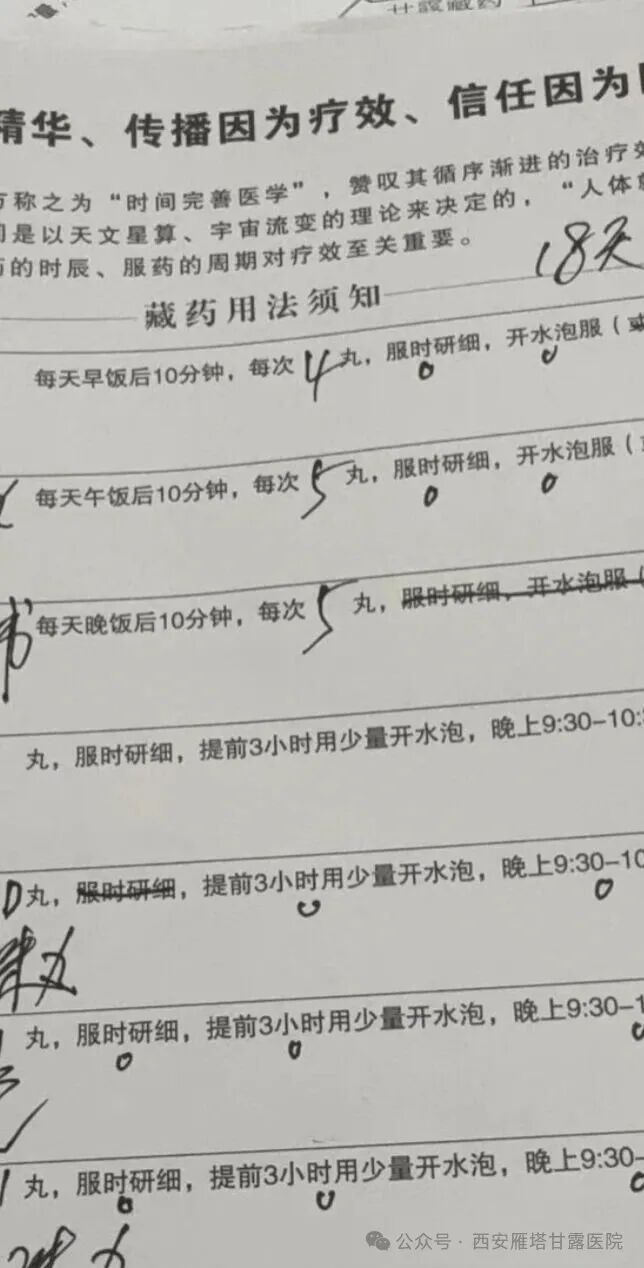 甘露藏药
精华、传播因为疗效、信任因为
称之为“时间完善医学”，赞叹其循序渐进的治疗效
是以天文星算、宇宙流变的理论来决定的，“人体
药的时辰、服药的周期对疗效至关重要。
18天
藏药用法须知
每天早饭后10分钟，每次4丸，服时研细，开水泡服（或
每天午饭后10分钟，每次5丸，服时研细，开水泡服（
每天晚饭后10分钟，每次5丸，服时研细，开水泡服（
丸，服时研细，提前3小时用少量开水泡，晚上9:30-10:
丸，服时研细，提前3小时用少量开水泡，晚上9:30-10
丸，服时研细，提前3小时用少量开水泡，晚上9:30-1
丸，服时研细，提前3小时用少量开水泡，晚上9:30-
公众号·西安雁塔甘露医院